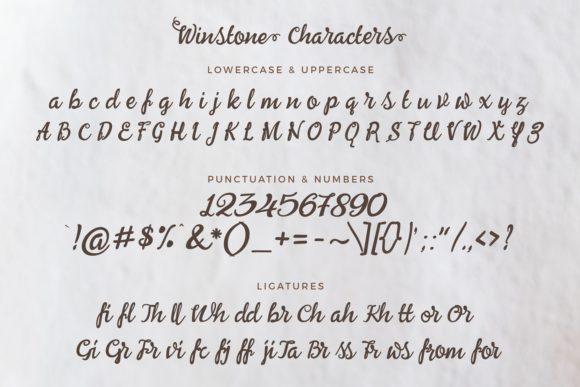 Winstone Characters
LOWERCASE & UPPERCASE
a b c d e f g h i j k l m n o p q r s t u v w x y z
A B C D E F G H I J K L M N O P Q R S T U V W X Y Z
PUNCTUATION & NUMBERS
1234567890
`!@#$%^&*()_+=-~\][{}|';:"/.,<>?
LIGATURES
fi fl Th ll Wh dd br Ch ah Kh tt or Or
Gi Gr Fr vi fc fj ff ji Ta Br ss Tr ws from for